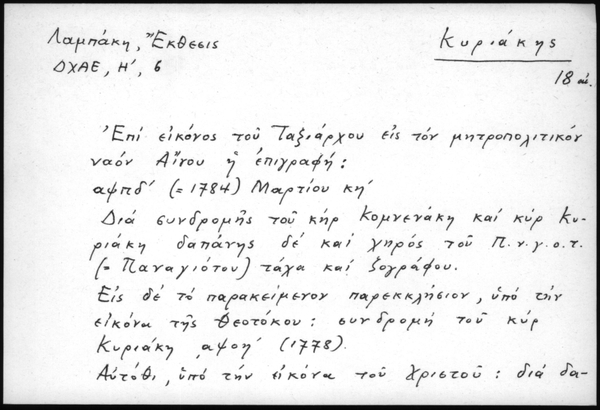 Λαμπάκη, Ἔκθεσις
ΔΧΑΕ, Η', 6
Κυριάκης
18 αἰ.
Ἐπί εἰκόνος τοῦ Ταξιάρχου εἰς τόν μητροπολιτικόν
ναόν Αἴνου ἡ ἐπιγραφή:
αψπδ' (=1784) Μαρτίου κη'
Διά συνδρομῆς τοῦ κήρ Κομνενάκη καί κύρ Κυ-
ριάκη δαπάνης δέ καί χηρός τοῦ Π.ν.γ.ο.τ.
(=Παναγιότου) τάχα καί ζογράφου.
Εἰς δέ τό παρακείμενον παρεκκλήσιον, ὑπό τήν
εἰκόνα τῆς Θεοτόκου: συνδρομή τοῦ κύρ
Κυριάκη ͵αψοη' (1778).
Αὐτόθι, ὑπό τήν εἰκόνα τοῦ Χριστοῦ: διά δα-